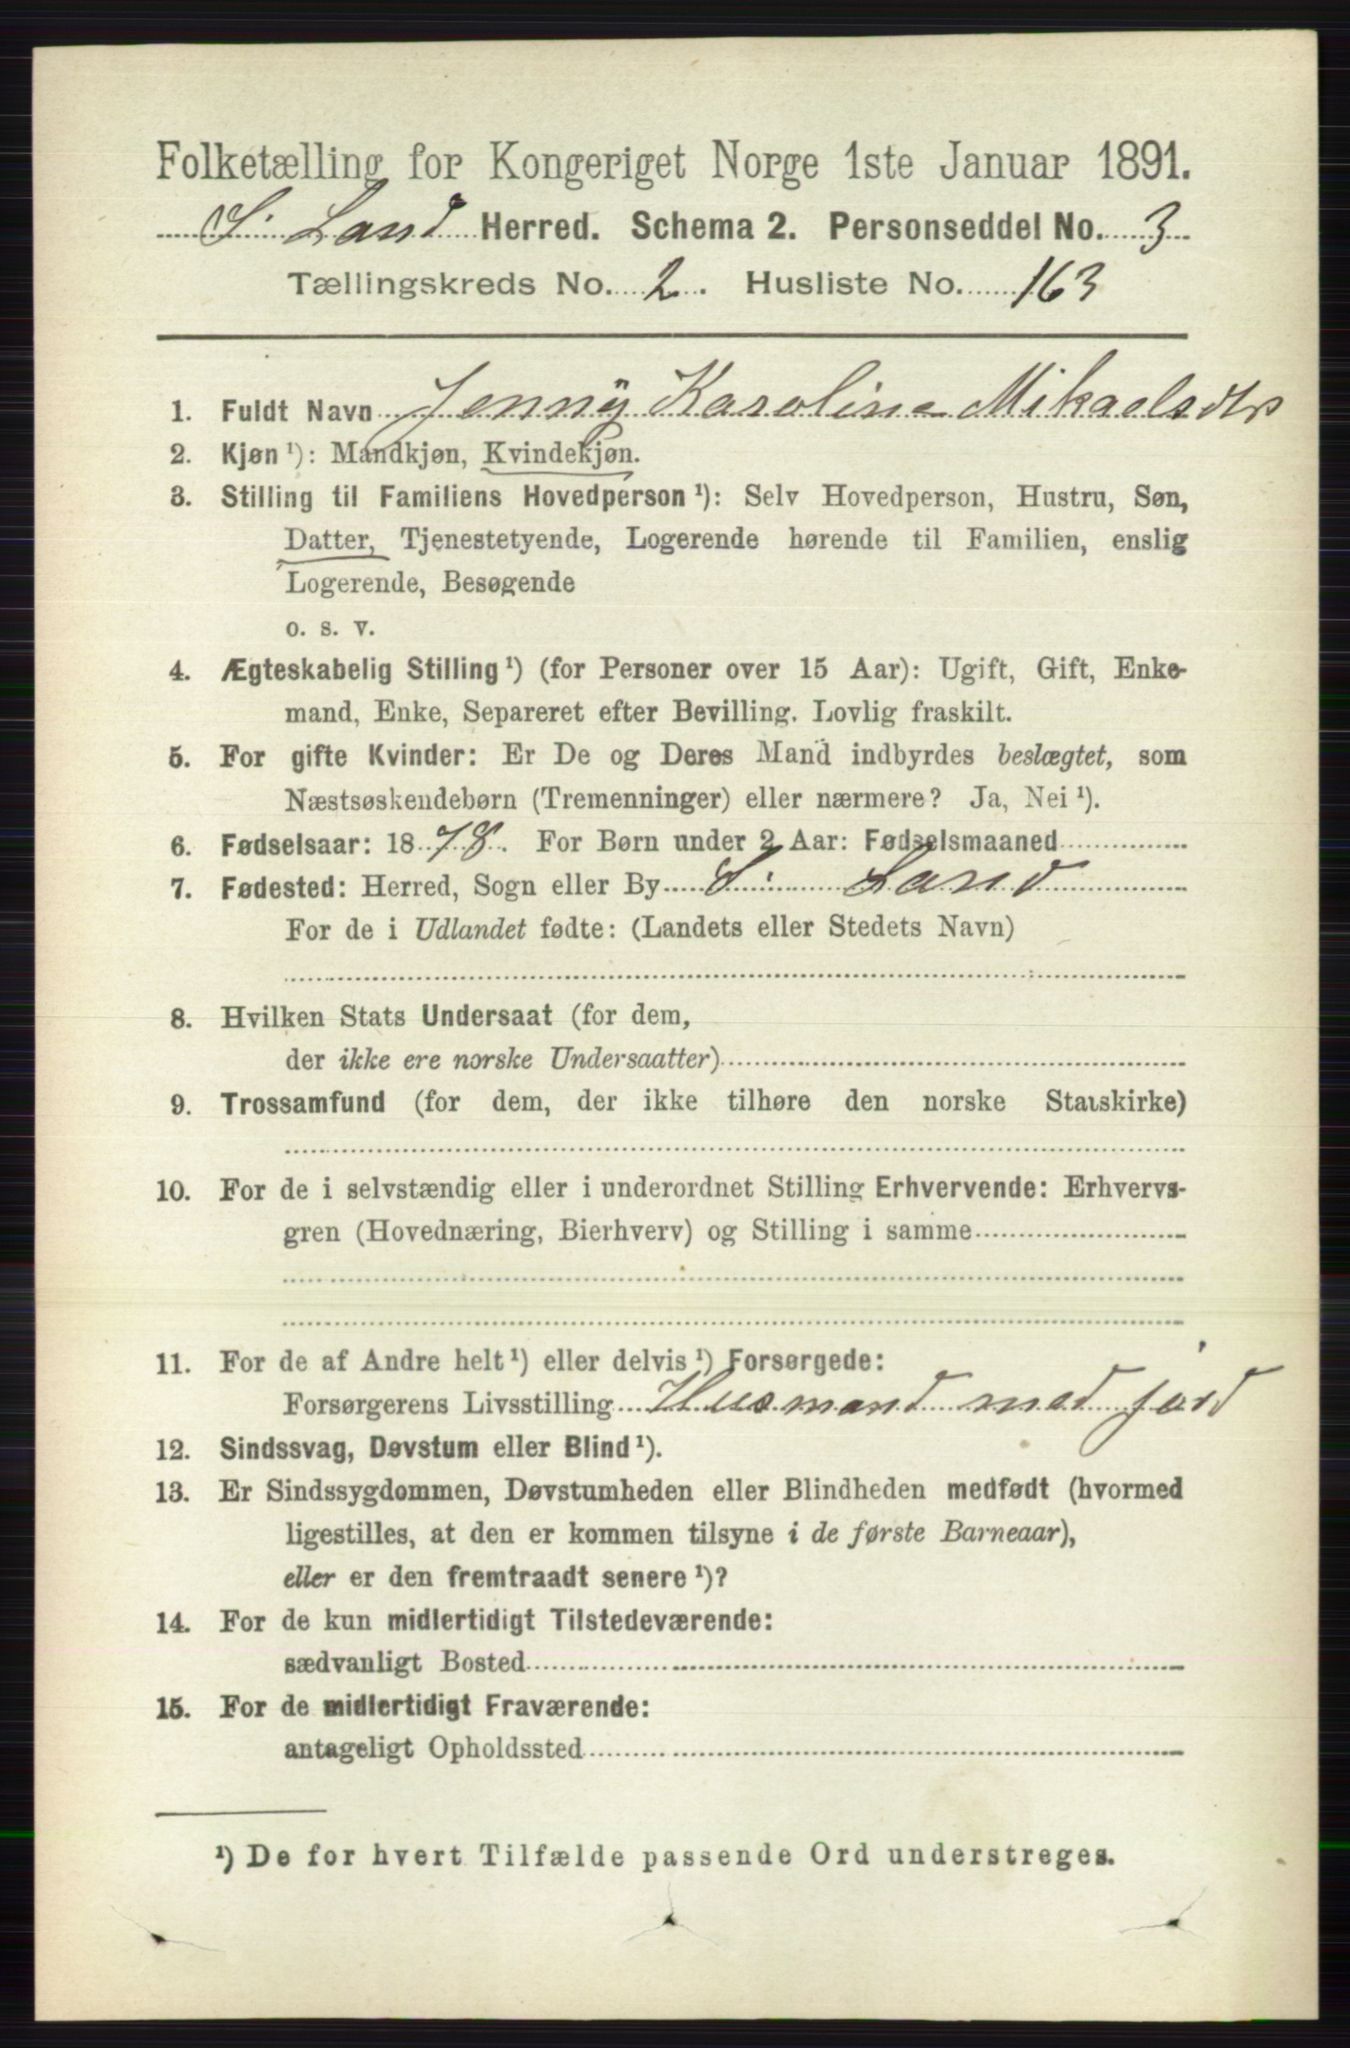 Folketælling for Kongeriget Norge 1ste Januar 1891.
S. Land Herred. Schema 2. Personseddel No. 3
Tællingskreds No. 2. Husliste No. 163
1. Fuldt Navn Jenny Karoline Mikaelsdtr
2. Kjøn ¹): Mandkjøn, Kvindekjøn.
3. Stilling til Familiens Hovedperson ¹): Selv Hovedperson, Hustru, Søn,
Datter, Tjenestetyende, Logerende hørende til Familien, enslig
Logerende, Besøgende
o. s. v.
4. Ægteskabelig Stilling ¹) (for Personer over 15 Aar): Ugift, Gift, Enke-
mand, Enke, Separeret efter Bevilling. Lovlig fraskilt.
5. For gifte Kvinder: Er De og Deres Mand indbyrdes beslægtet, som
Næstsøskendebørn (Tremenninger) eller nærmere? Ja, Nei ¹).
6. Fødselsaar: 1878. For Børn under 2 Aar: Fødselsmaaned
7. Fødested: Herred, Sogn eller By S. Land
For de i Udlandet fødte: (Landets eller Stedets Navn)
8. Hvilken Stats Undersaat (for dem,
der ikke ere norske Undersaatter)
9. Trossamfund (for dem, der ikke tilhøre den norske Statskirke)
10. For de i selvstændig eller i underordnet Stilling Erhvervende: Erhvervs-
gren (Hovednæring, Bierhverv) og Stilling i samme
11. For de af Andre helt ¹) eller delvis ¹) Forsørgede:
Forsørgerens Livsstilling Husmand med jord
12. Sindssvag, Døvstum eller Blind ¹).
13. Er Sindssygdommen, Døvstumheden eller Blindheden medfødt (hvormed
ligestilles, at den er kommen tilsyne i de første Barneaar),
eller er den fremtraadt senere ¹)?
14. For de kun midlertidigt Tilstedeværende:
sædvanligt Bosted
15. For de midlertidigt Fraværende:
antageligt Opholdssted
¹) De for hvert Tilfælde passende Ord understreges.